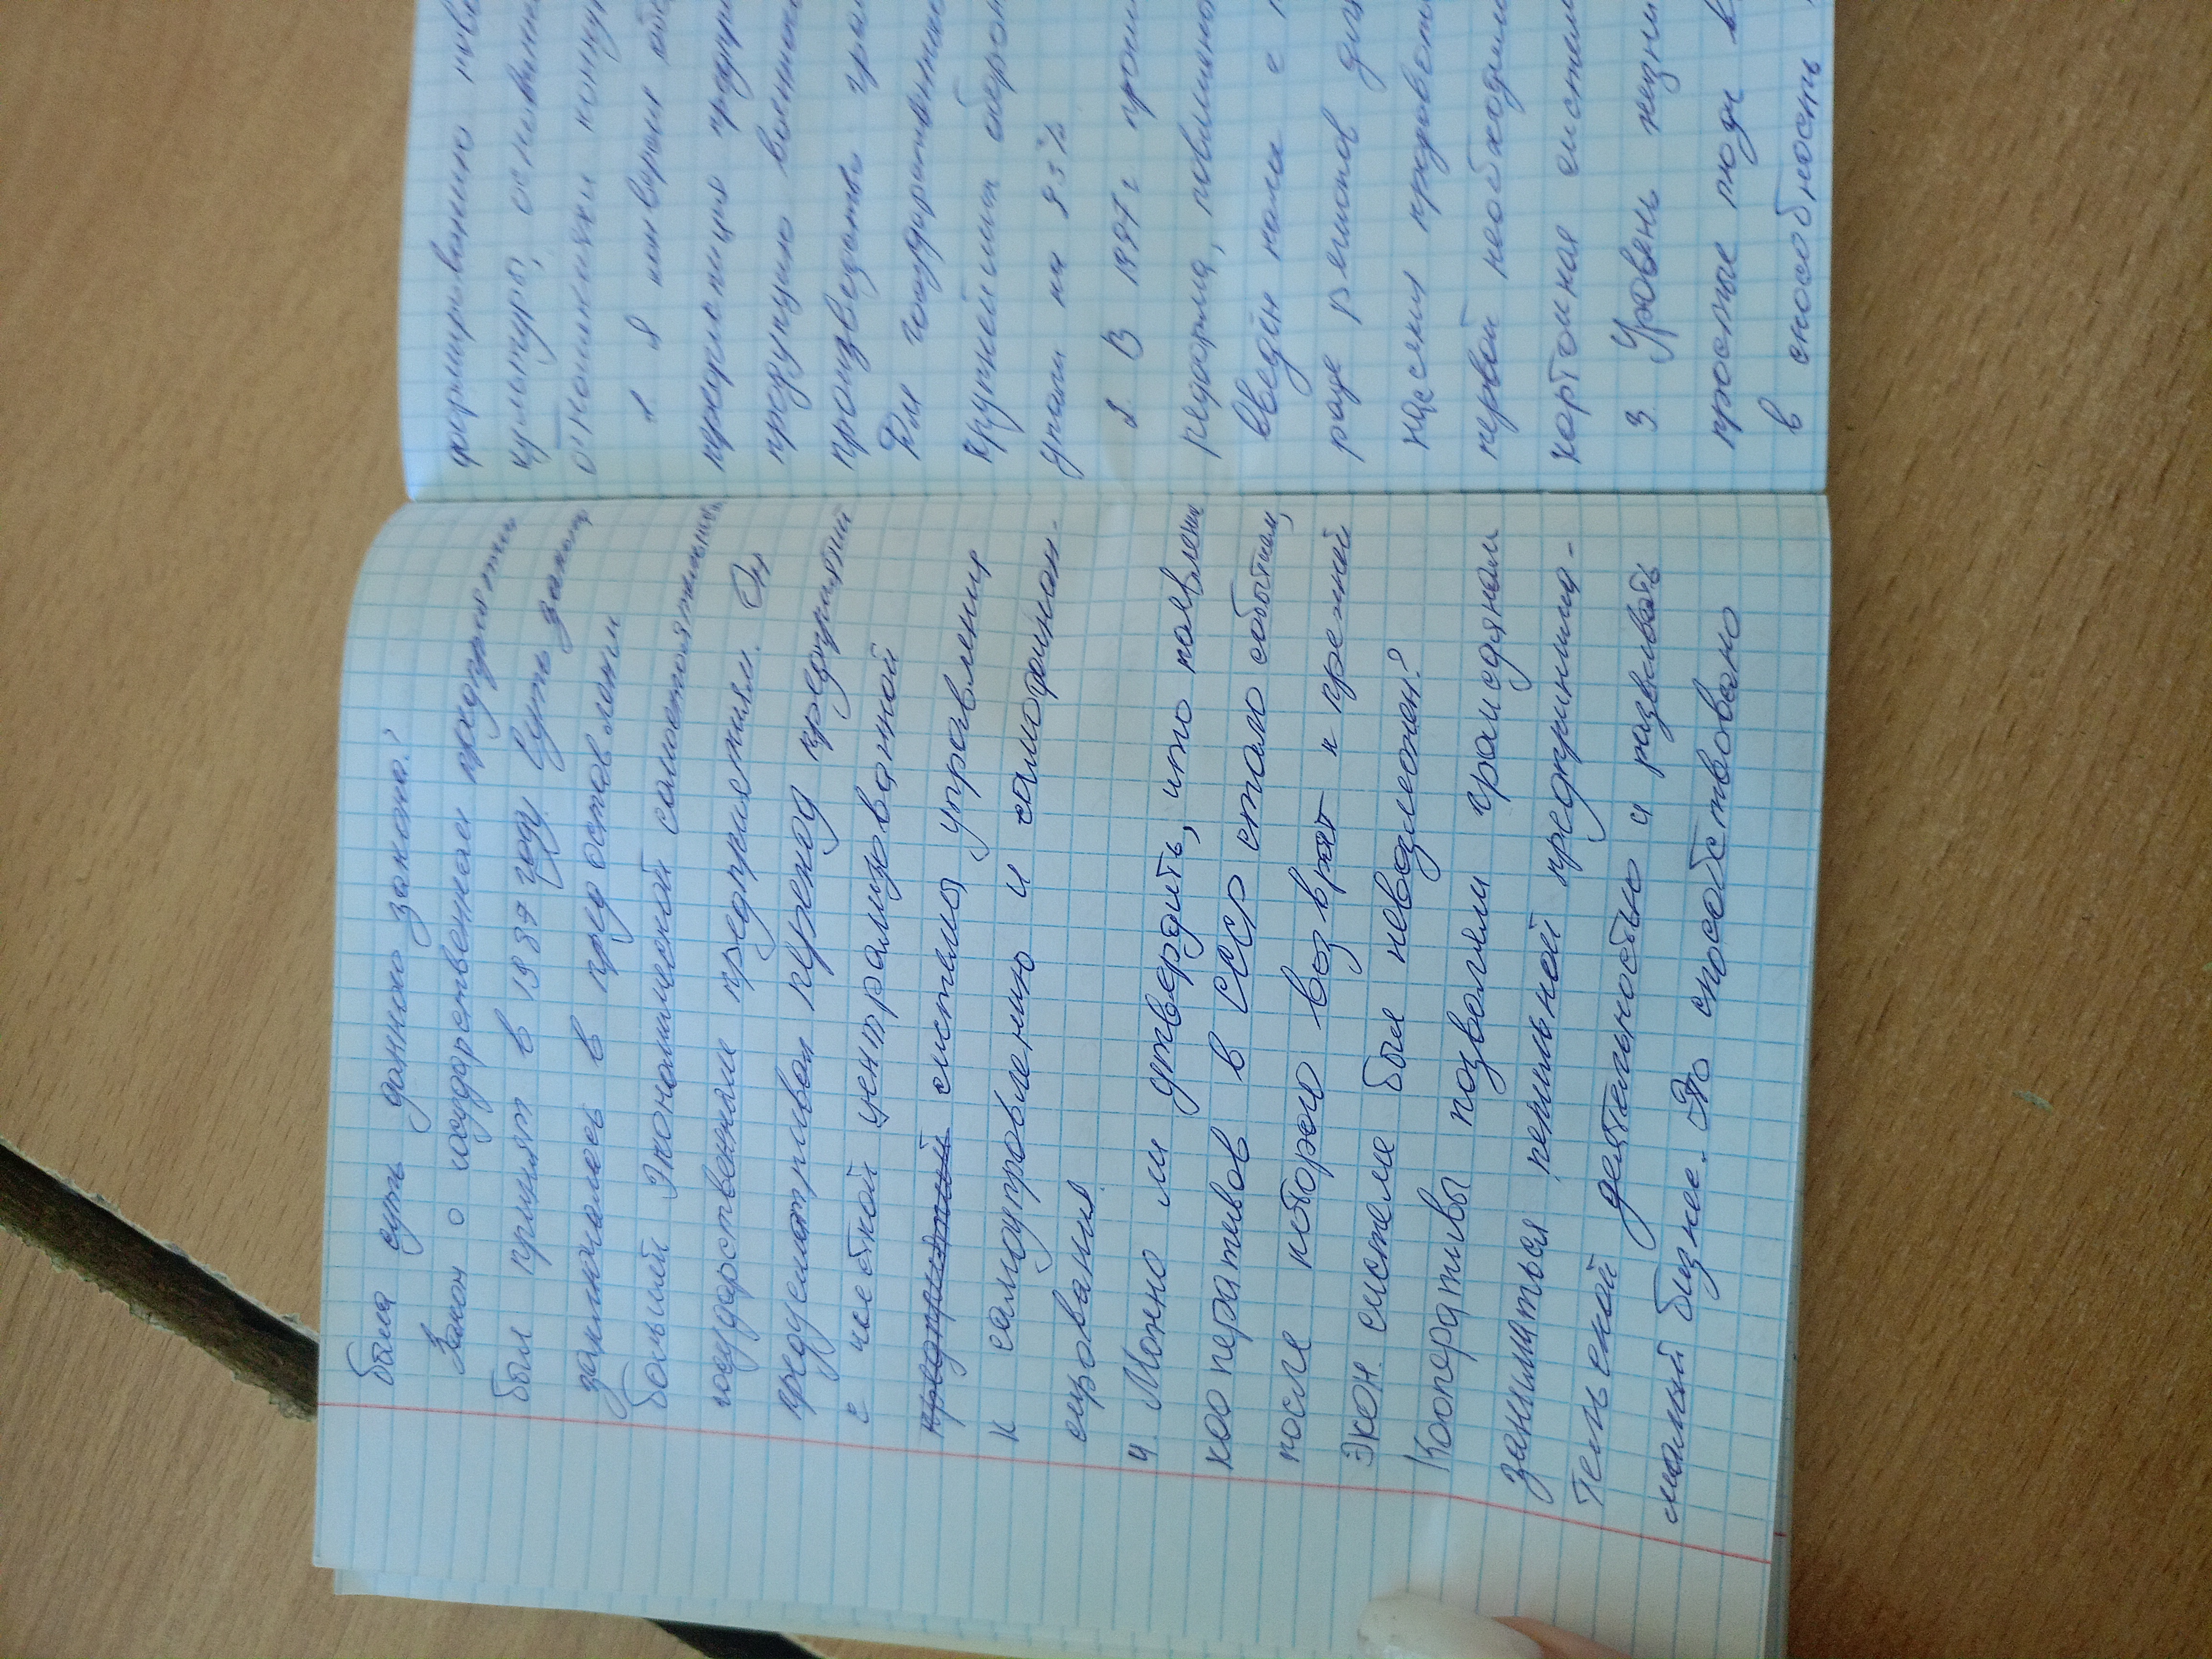 была суть данного закона?
Закон о государственном предприятии
был принят в 1987 году. Суть закона
заключалась в предоставлении
большей экономической самостоятельности
государственным предприятиям. Он
предусматривал переход предприятий
с чёткой централизованной
предприятий системы управления
к самоуправлению и самофинан-
сирования.
4. Можно ли утвердить, что появление
кооперативов в СССР стало событием,
после которого возврат к прежней
экон. системе был невозможен?
Кооперативы позволяли гражданам
заниматься легальной предпринима-
тельской деятельностью и развивать
малый бизнес. Это способствовало
формированию ново
культуры, основанн
отношениях конку
1. В конверсия
продукцию
производства граж
Для государственн
крупнейших оборон
упали на 93%
2. В 1997г
реформа, повлиявш
введён нало с
ряде регионов
населения
первой необходим
карточная систем
3. Уровень жизни
простые люди
в способность